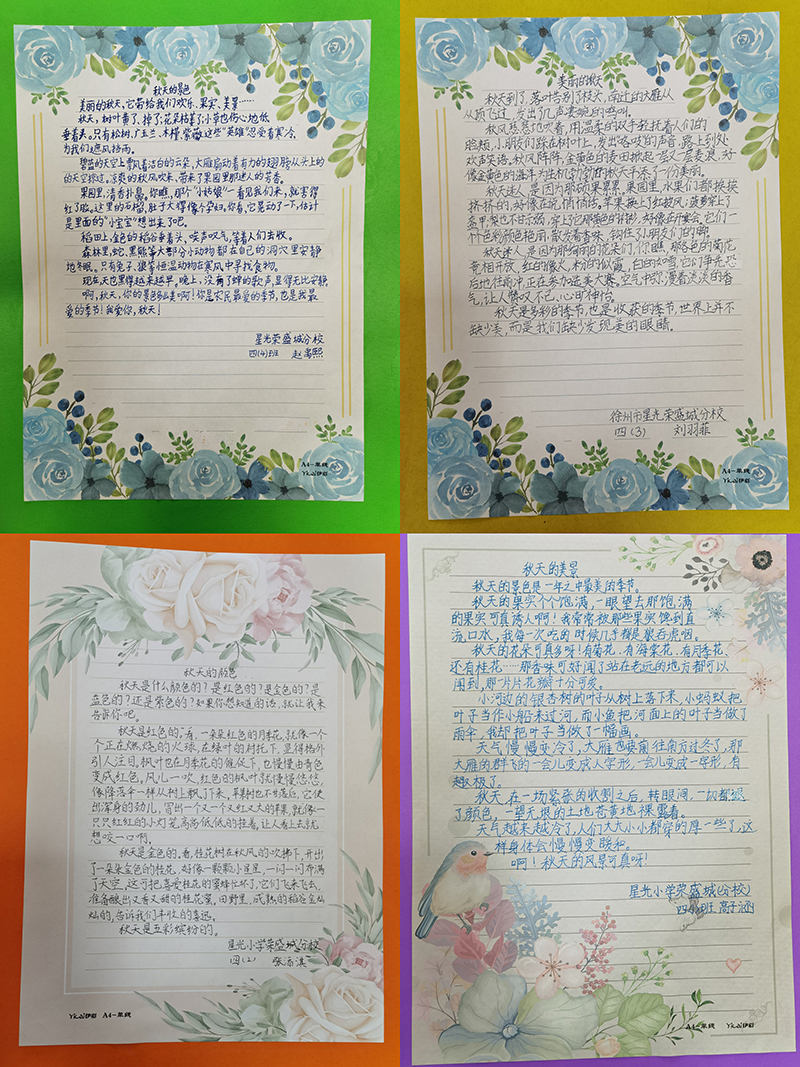 秋天的景色
美丽的秋天,它带给我们欢乐、果实、美景……
秋天,树叶黄了,掉了,花朵枯萎了,小草也伤心地低
垂着头。只有松树、广玉兰、木槿、紫薇这些"英雄"忍受着寒冷,
为我们遮风挡雨。
碧蓝的天空上飘着洁白的云朵,大雁扇动着有力的翅膀从头上的
的天空掠过。凉爽的秋风吹来,带来了果园里那迷人的芳香。
果园里,清香扑鼻。你瞧,那个"小姑娘"一看见我们来,就害得
红了脸。这里的石榴,肚子大得像个孕妇。你看,它晃动了一下,估计
是里面的"小宝宝"想出来了吧。
稻田上,金色的稻谷垂着头,唉声叹气,等着人们去收。
森林里,蛇、黑熊等大部分小动物都在自己的洞穴里安静
地冬眠。只有兔子、狼等恒温动物在寒风中寻找食物。
现在,天也黑得越来越早。晚上,没有了蝉的歌声,显得无比安静。
啊,秋天,你的景色多么美啊!你是农民最爱的季节,也是我最
爱的季节!我爱你,秋天!
星光荣盛城分校
四(4)班 赵高熙
美丽的秋天
秋天到了,落叶告别了枝头,南迁的大雁从
从顶飞过,发出几声委婉的鸣叫。
秋风轻轻地吹着,用温柔的双手轻抚着人们的
脸颊,小朋友们踩在树叶上,发出咯吱的声音,路上到处
欢声笑语。秋风阵阵,金黄色的麦田掀起一层又一层麦浪,好
像金黄色的海洋,为生机勃勃的秋天千添了一份美丽。
秋天迷人,是因为那硕果累累,果园里,水果们都挨挨
挤挤的,好像在说悄悄话。苹果换上了红披风,菠萝穿上了
盔甲,梨也不甘示弱,穿上了它那黄色的衬衫,好像在开宴会,它们一
个个色彩颜色艳丽,散发着香味,钩住了小朋友们的脚。
秋天迷人,是因为那绚丽的花朵们,你瞧,那各色的菊花
竞相开放,红的像火,粉的似霞,白的如雪,它们争先恐
后地往前冲,正在参加选美大赛,空气中弥漫着淡淡的香
气,让人情叹不已,心旷神怡。
秋天是多彩的季节,也是收获的季节,世界上并不
缺少美,而是我们缺少发现美的眼睛。
徐州市星光荣盛城分校
四(3) 刘羽菲
A4-单线
Yk.ai伊彩
A4-单线
Yk.ai伊彩
秋天的颜色
秋天是什么颜色的?是红色的?是金色的?是
蓝色的?还是紫色的?如果你想知道的话,就让我来
告诉你吧。
秋天是红色的,看,一朵朵红色的月季花,就像一个
个正在燃烧的火球,在绿叶的衬托下,显得格外
引人注目。枫叶也在月季的催促下,也慢慢由青色
变成红色。风儿一吹,红色的枫叶就慢慢悠悠,
像降落伞一样从树上飘了下来,苹果树也不甘落后,它使
出浑身的劲儿,写出一个又一个又红又大的苹果,就像一
只只红红的小灯笼高高低低的挂着,让人看上去就
想咬一口啊。
秋天是金色的。看,桂花树在秋风的吹拂下,开出
了一朵朵金色的桂花,好像一颗颗小星星,一闪一闪布满
了天空。这可把喜爱桂花的蜜蜂忙坏了,它们飞来飞去,
准备酿出又香又甜的桂花蜜,田野里,成熟的稻谷金灿
灿的,告诉我们丰收的喜讯。
秋天是五彩缤纷的。
星光小学荣盛城分校
四(2)
Yk.ai伊彩 A4-单线
秋天的美景
秋天的景色是一年之中最美的季节。
秋天的果实个个饱满,一眼望去那饱满
的果实可真诱人啊!我常常被那些果实馋到直
流口水,我每一次吃的时候几乎都是狼吞虎咽。
秋天的花朵可真多呀!有菊花,有海棠花,有月季花,
还有桂花……那香味可好闻了站在老远的地方都可以
闻到,那一片片花瓣十分可爱。
小河边的银杏树的叶子从树上落下来,小蚂蚁把
叶子当作小船来过河,而小鱼把河面上的叶子当做了
雨伞,我却把叶子当做了一幅画。
天气慢慢变冷了,大雁也要前往南方过冬了,那
大雁的群飞的一会儿变成人字形,一会儿变成一字形,有
趣极了。
秋天,在一场紧张的收割之后,转眼间,一切都退
了颜色,一望无垠的土地苍黄地裸露着。
天气越来越冷了,人们大大小小都穿的厚一些了,这
样身体会慢慢变暖和。
啊!秋天的风景可真呀!
星光小学荣盛城(分校)
四(1)班 高子涵
A4-单线 Yk.ai伊彩